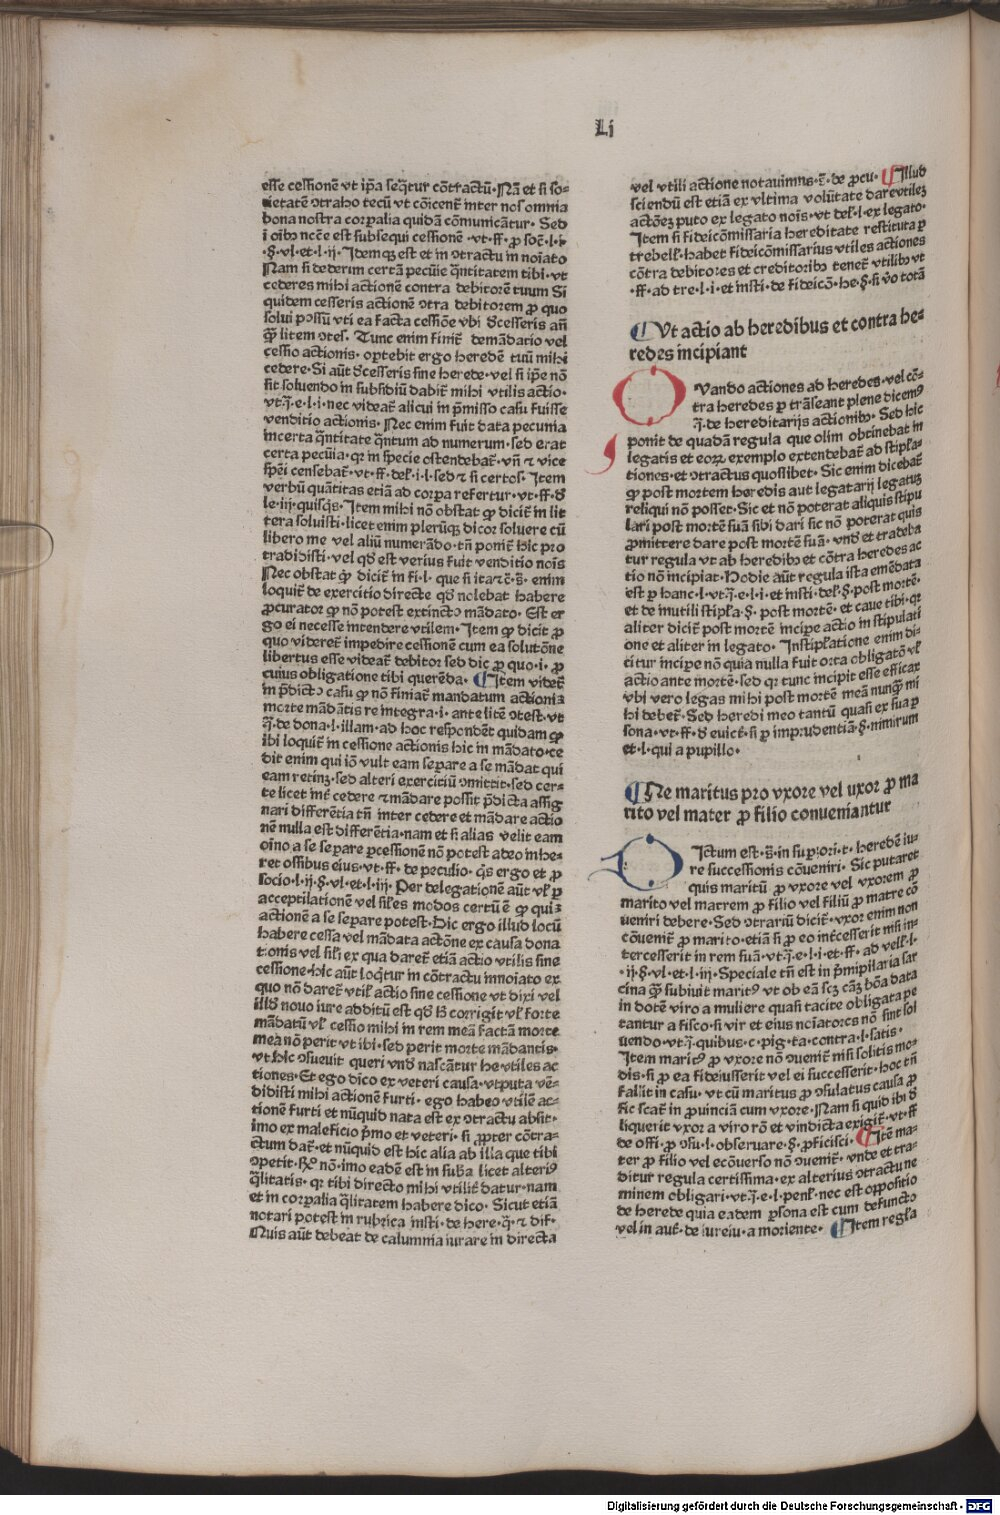 Li
esse cessionē vt ip̄a seq̄tur cōtractū. Nā et si so-
cietatē ↄtraho tecū vt cōicent̄ inter nos omnia
bona nostra corꝑalia quidā cōmunicātur. Sed
ī oībꝫ nc̄ce est subsequi cessionē. vt. ff. ꝓ soc̄. l. i.
.§. vl. et. l. ij. Idemqꝫ est et in ↄtractu in noīato
Nam si dederim certā pecūie q̄ntitatem tibi. vt
cederes mihi actionē contra debitorē tuum Si
quidem cesseris actionē ↄtra debitorem ꝓ quo
solui possū vti ea facta cessiōe vbi d̄cesseris añ
q̄ꝫ litem ↄtes. Tunc enim finit̄ demādatio vel
cessio actionis. oꝑtebit ergo heredē tuū mihi
cedere. Si aūt d̄cesseris sine herede. vel si ip̄e nō
sit soluendo in subsidiū dabit̄ mihi vtilis actio.
vt. j̄. e. l. i. nec videat̄ alicui in p̄misso casu fuisse
venditio actionis. Nec enim fuit data pecunia
incerta q̄ntitate q̄ntum ad numerum. sed erat
certa pecūia. qr in specie ostendebat̄. vñ ⁊ vice
sp̄ei censebat̄. vt. ff. del̄. i. l. sed ⁊ si certos. Item
verbū quātitas etiā ad corꝑa refertur. vt. ff. d̄
le. iij. quisq̄s. Item mihi nō obstat ꝙ dicit̄ in lit
tera soluisti. licet enim plerūqꝫ dicor soluere cū
libero me vel aliū numerādo. tn̄ ponit̄ hic pro
tradidisti. vel qd̄ est verius fuit venditio noīs
Nec obstat ꝙ dicit̄ in fi. l. que si ita ⁊c̄. s̄. enim
loquit̄ de exercitio directe qd̄ nolebat habere
ꝓcurator ꝙ nō potest extincto mādato. Est er
go ei necesse intendere vtilem. Item ꝙ dicit ꝓ
quo videret̄ impedire cessionē cum ea solutōne
libertus esse videat̄ debitor sed dic ꝓ quo. i. ꝓ
cuius obligatione tibi querēda. Item videt̄
in p̄dicto casu ꝙ nō finiat̄ mandatum actionis
morte mādātis re integra. i. ante litē ↄtest. vt
j̄. de dona. l. illam. ad hoc respondēt quidam ꝙ
ibi loquit̄ in cessione actionis hic in mādato. ce
dit enim qui iō vult eam seꝑare a se mādat qui
eam retinꝫ. sed alteri exerciciū ↄmittit. sed cer-
te licet int̄ cedere ⁊ mādare possit p̄dicta assig
nari differētia tn̄ inter cedere et mādare actio
nē nulla est differētia. nam et si alias velit eam
oīno a se seꝑare ꝑcessionē nō potest adeo inhe-
ret ossibus eius. vt. ff. de peculio. q̄s ergo et ꝓ
socio. l. ij. §. vl. et. l. iij. Per delegationē aūt vl̄ ꝑ
acceptilationē vel sil̄es modos certū ē ꝙ qui-
actionē a se seꝑare potest. Dic ergo illud locū
habere cessa vel mādata actōne ex causa dona
tionis vel sil̄i ex qua daret̄ etiā actio vtilis sine
cessione. hic aūt loq̄tur in cōtractu innoīato ex
quo nō daret̄ vtil̄ actio sine cessione vt dixi vel
illd̄ nouo iure additū est qd̄ h̄ corrigit vl̄ forte
mādatū vl̄ cessio mihi in rem meā factā morte
mea nō perit vt ibi. sed perit morte mādantis.
vt hic ↄsueuit queri vnd̄ nascātur he vtiles ac
tiones. Et ego dico ex veteri causa. vtputa vē-
didisti mihi actionē furti. ego habeo vtilē ac-
tionē furti et nūquid nata est ex ↄtractu absit.
imo ex maleficio p̄mo et veteri. si ꝓpter cōtra-
ctum dat̄. et nūquid est hic alia ab illa que tibi
ↄpetit. R̄o nō. imo eadē est in suba licet alteriꝰ
q̄litatis. qr tibi directo mihi vtilit̄ datur. nam
et in corꝑalia q̄litatem habere dico. Sicut etiā
notari potest in rubrica insti. de here. q̄. ⁊ dif.
Nuis aūt debeat de calumnia iurare in directa
vel vtili actione notauimus. s̄. de ꝓcu. Illud
sciendū est etiā ex vltima volūtate dare vtilez
actōez puto ex legato noīs. vt del̄. l. ex legato.
Item si fideicōmissaria hereditate restituta ꝑ
trebell̄. habet fideicōmissarius vtiles actiones
cōtra debitores et creditoribꝫ tenet̄ vtilibꝫ vt
.ff. ad tre. l. i. et insti. de fideicō. he. §. si v̄o totā
Vt actio ab heredibus et contra he-
redes incipiant
Quando actiones ab heredes. vel cō-
tra heredes ꝑ trāseant plene dicemꝰ
j̄. de hereditarijs actionibꝫ. Sed hic
ponit de quadā regula que olim obtinebat in
legatis et eoꝝ exemplo extendebat̄ ad stipla-
tiones. et ↄtractus quoslibet. Sic enim dicebat̄
ꝙ post mortem heredis aut legatarij legatuꝫ
reliqui nō posset. Sic et nō poterat aliquis stipu
lari post mortē suā sibi dari sic nō poterat quis
ꝓmittere dare post mortē suā. vnd̄ et tradeba
tur regula vt ab heredibꝫ et cōtra heredes ac
tio nō incipiat. Hodie aūt regula ista emēdata
est ꝑ hanc. l. vt. j̄. e. l. i. et insti. del̄. §. post mortē.
et de inutili stipl̄a. §. post mortē. et caue tibi. qr
aliter dicit̄ post mortē incipe actio in stipulati
one et aliter in legato. In stipl̄atione enim di-
citur incipe nō quia nulla fuit orta obligatō vl̄
actio ante mortē. sed qr tunc incipit esse efficax
vbi vero legas mihi post mortē meā nunqꝫ mi
hi debet̄. Sed heredi meo tantū quasi ex sua ꝑ
sona. vt. ff. d̄ euict̄. si ꝑ imprudentiā. §. nimirum
et. l. qui a pupillo.
Ne maritus pro vxore vel uxor ꝓ ma
rito vel mater ꝓ filio conueniantur
Dictum est. s̄. in superiori. t. heredē iu-
re successionis cōueniri. Sic putaret
quis maritū ꝓ vxore vel vxorem ꝓ
marito vel matrem ꝓ filio vel filiū ꝓ matre cō
ueniri debere. Sed ↄtrariū dicit̄. vxor enim non
cōuenit̄ ꝓ marito. etiā si ꝓ eo int̄cesserit nisi in-
tercesserit in rem suā. vt. j̄. e. l. i. et. ff. ad vell̄. l.
.ij. §. vl. et. l. iij. Speciale tn̄ est in p̄mipilaria sar
cina q̄ꝫ subiuit maritꝰ vt ob eā scꝫ cāꝫ bōa data
in dotē viro a muliere quasi tacite obligata pe
tantur a fisco. si vir et eius noīatores nō sint sol
uendo. vt. j̄. quibus. c. pig. ta. contra. l. satis.
Item maritꝰ ꝓ vxore nō ↄuenit̄ nisi solitis mo-
dis. si ꝓ ea fideiusserit vel ei successerit. hoc tn̄
fallit in casu. vt cū maritus ꝓ ↄsulatus causa ꝓ
fic scat̄ in ꝓuinciā cum vxore. Nam si quid ibi d̄
liquerit vxor a viro rō et vindicta exigit̄. vt. ff
de offi. ꝓ ↄsu. l. obseruare. §. ꝓficisci. Itē ma-
ter ꝓ filio vel ecōuerso nō ↄuenit̄. vnde et tra-
ditur regula certissima. ex alterius ↄtractu ne
minem obligari. vt. j̄. e. l. penl̄. nec est oppositio
de herede quia eadem ꝑsona est cum defuncto
vel in aut̄. de iureiu. a moriente. Item regl̄a
Digitalisierung gefördert durch die Deutsche Forschungsgemeinschaft - DFG